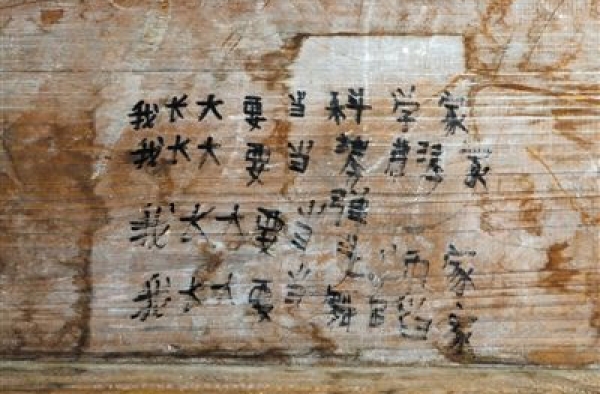 我长大要当科学家
我长大要当弹琴家
我长大要当家
我长大要当舞蹈家